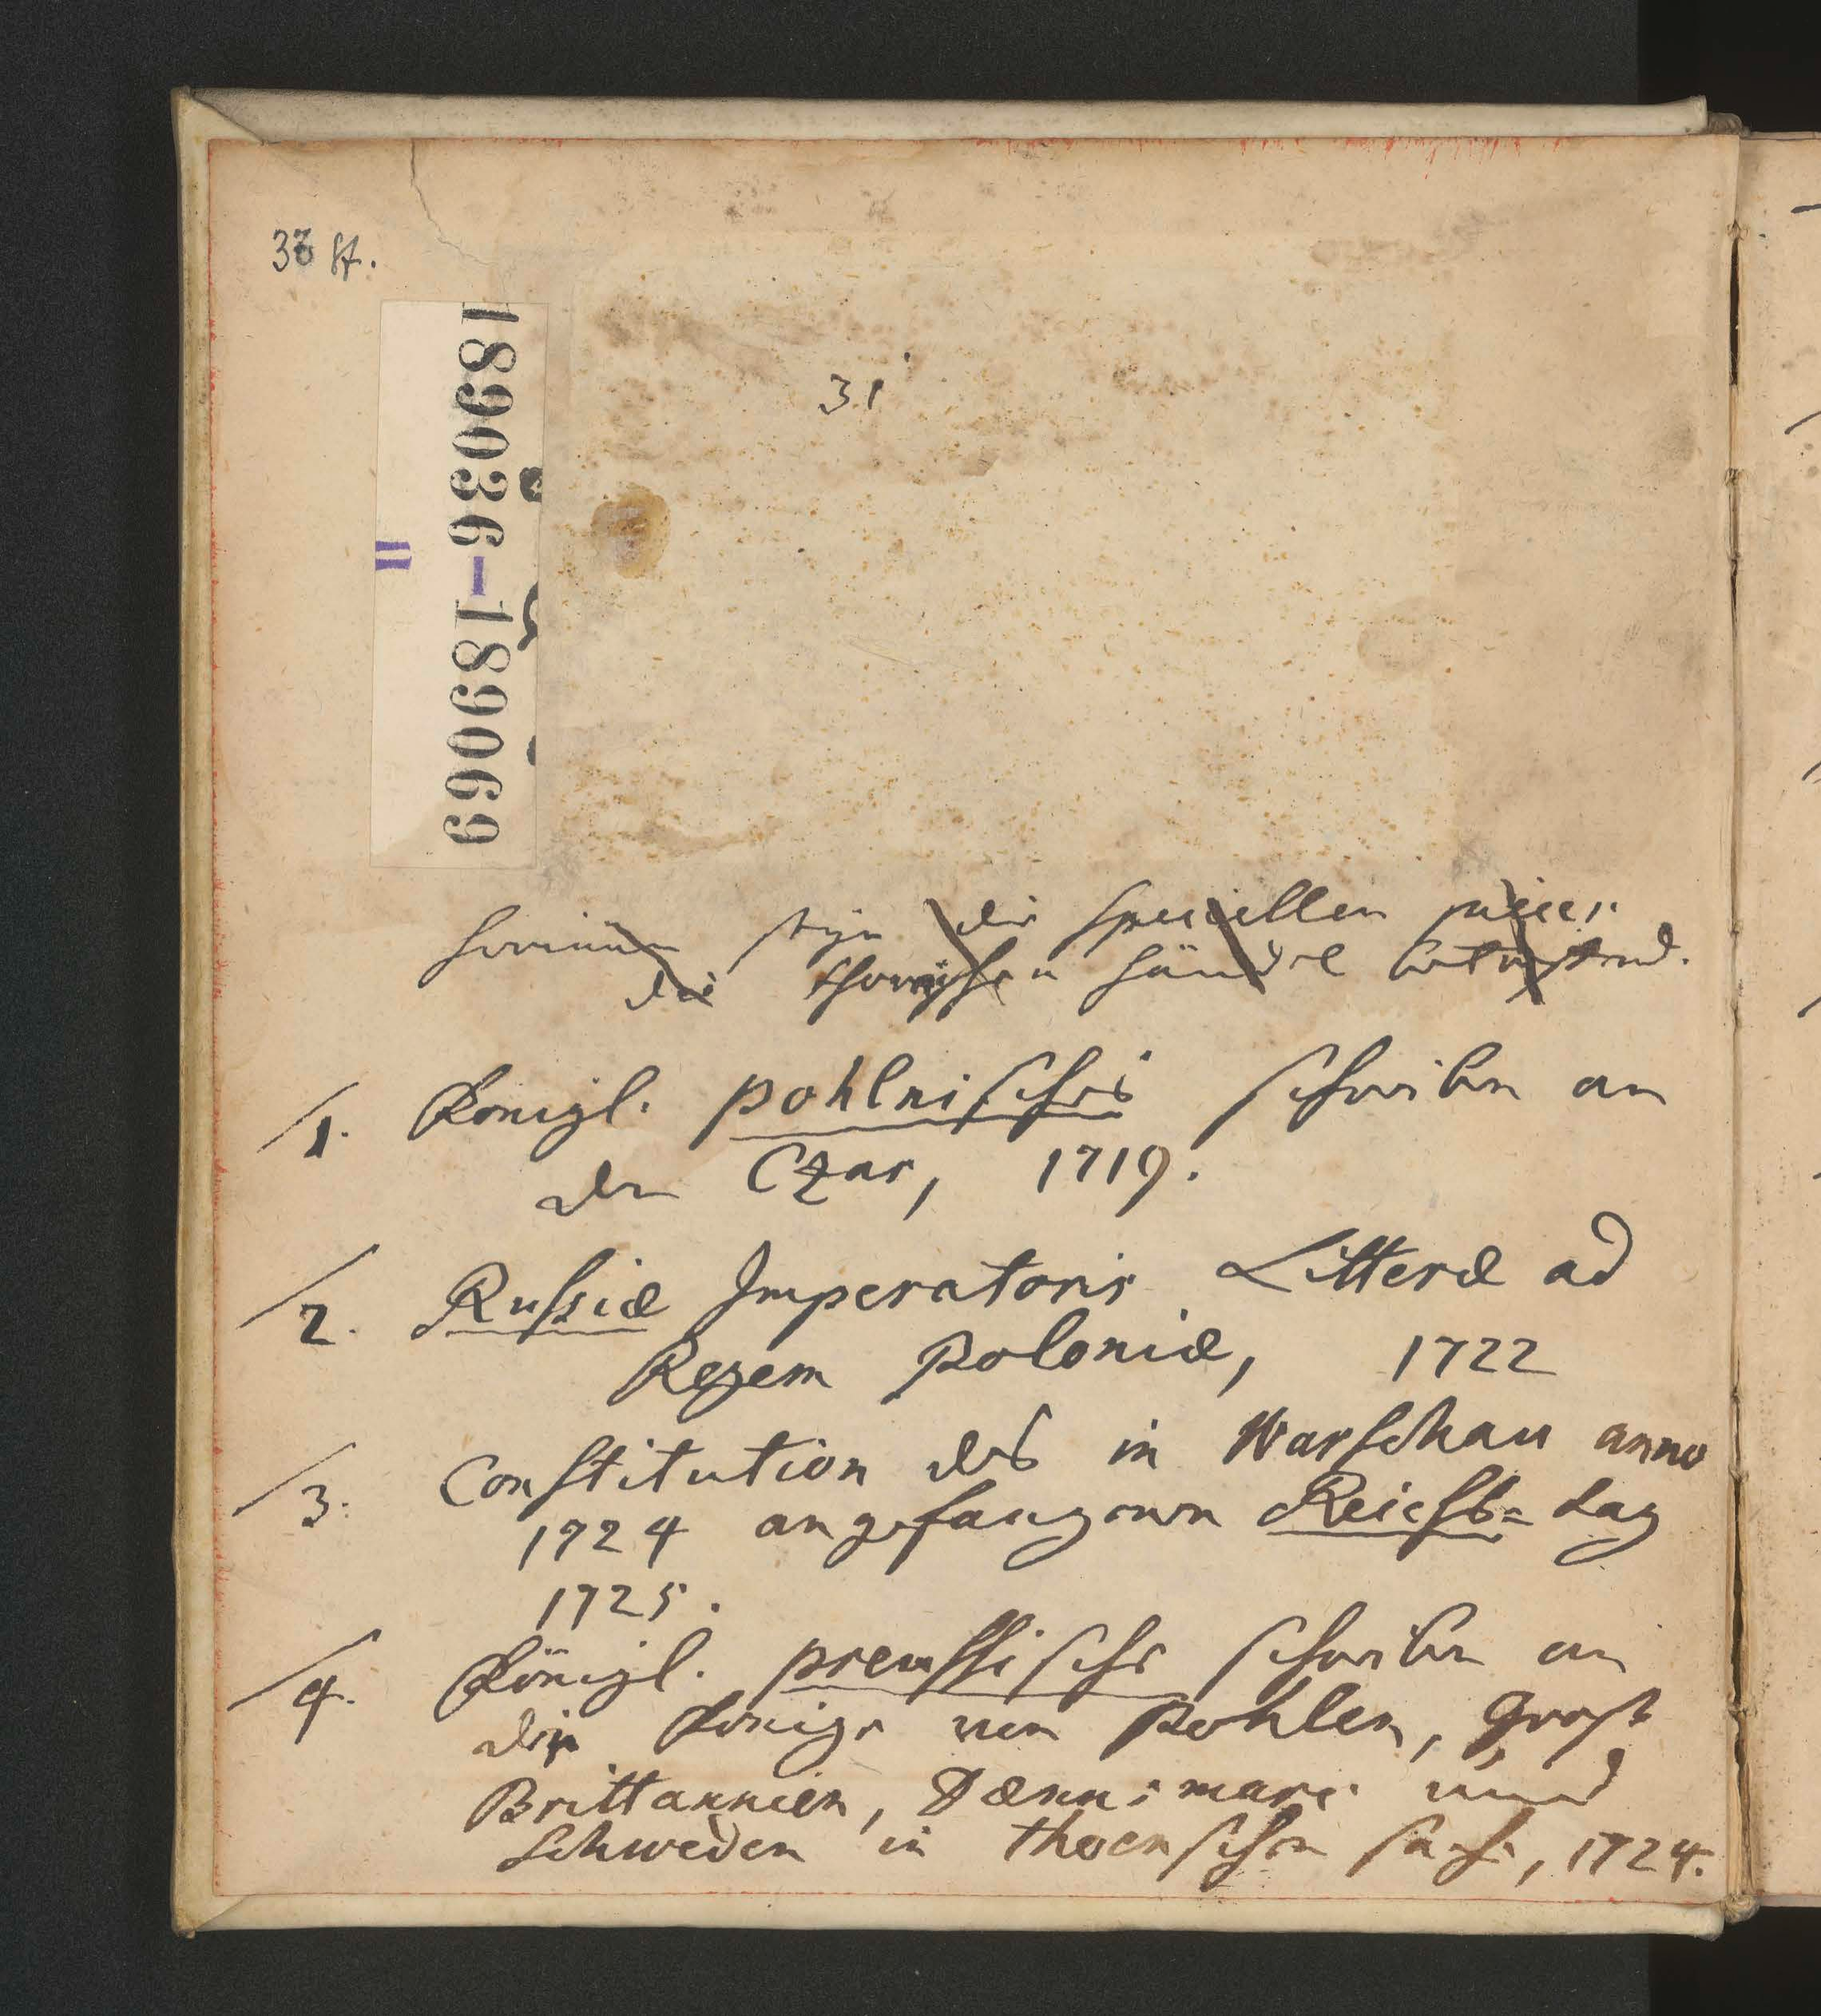 33 St.
189036-189069
II
31
hierinnen seyn die speciellen
die thornischen händel betreffend.
1. Königl. pohlnisches schreiben an
den Czar, 1719.
2. Russiæ Imperatoris Litteræ ad
Regem Poloniæ, 1722
3. Constitution des in Warschau anno
1724 angefangenen Reichs-tag
1725.
4. Königl. preussische schreiben an
die Könige von Pohlen, Groß
Brittannien, Dænnemarc und
Schweden in thornschen sache, 1724.